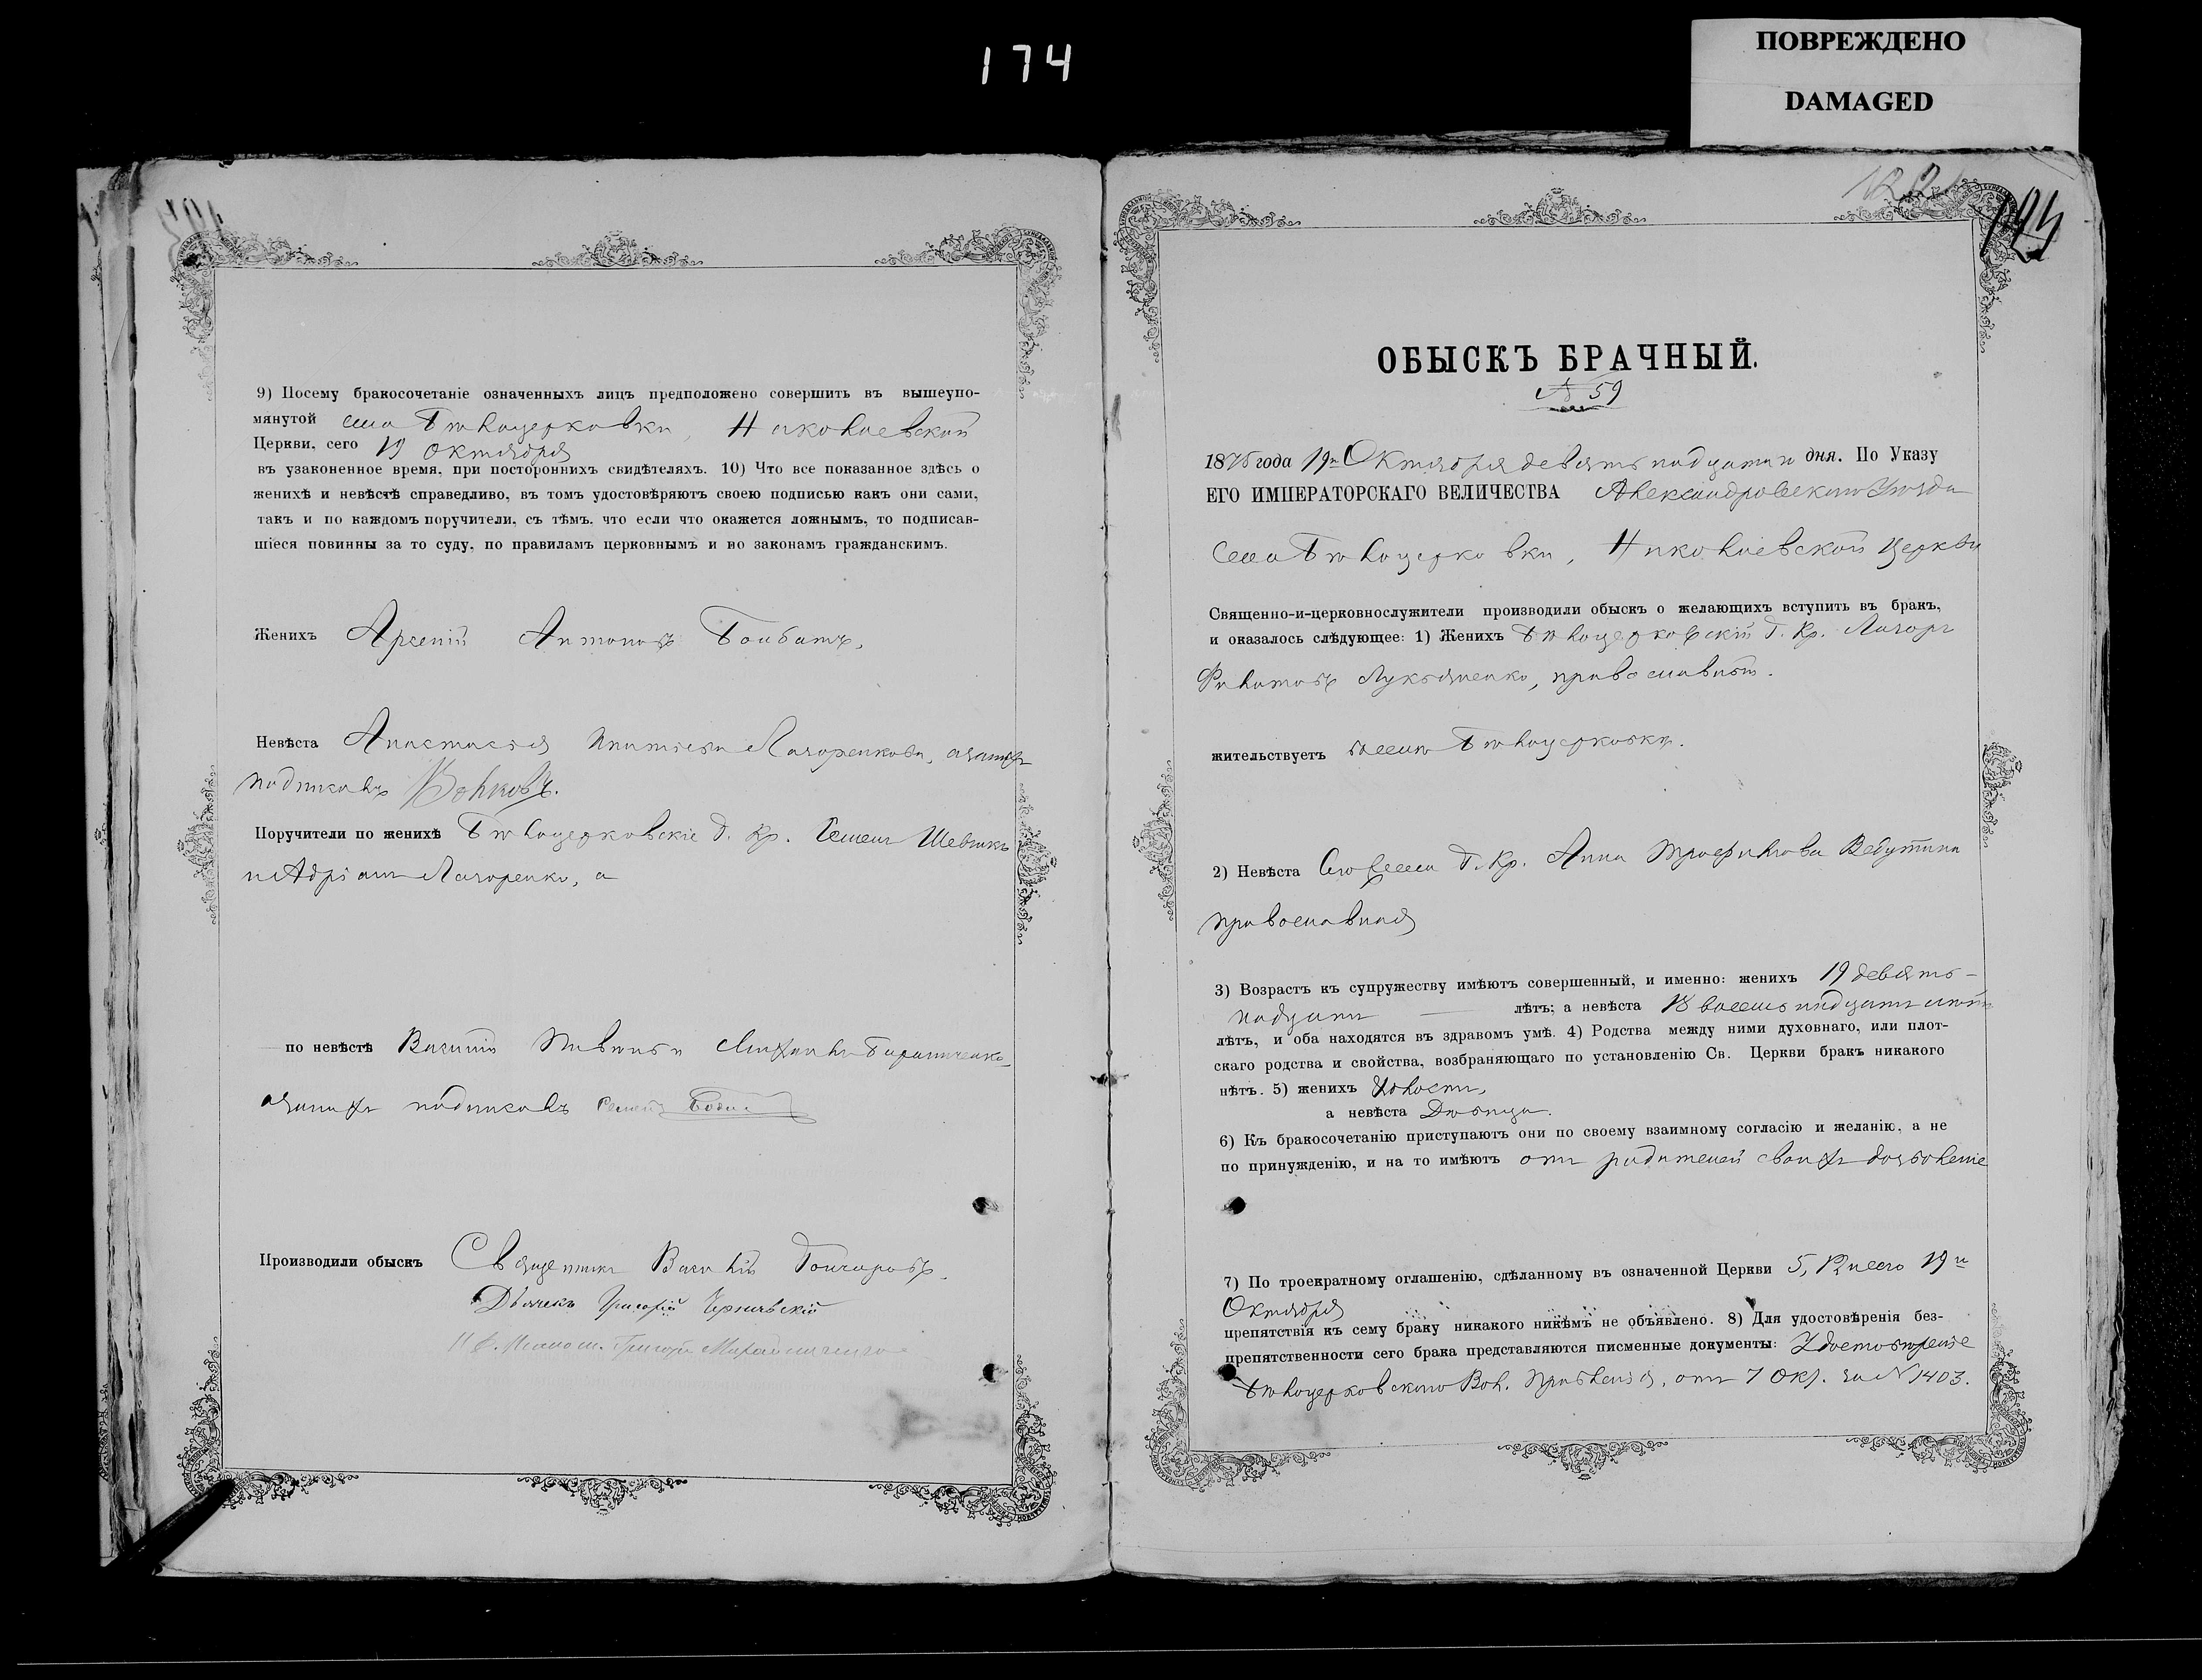 174
ПОВРЕЖДЕНО
DAMAGED
9) Посему бракосочетаніе означенныхъ лицъ предположено совершить въ вышеупо-
мянутой села Бѣлоцерковки, Николаевской
Церкви, сего 19 октября
въ узаконенное время, при постороннихъ свидѣтеляхъ. 10) Что все показанное здѣсь о
женихѣ и невѣстѣ справедливо, въ томъ удостовѣряютъ своею подписью какъ они сами,
такъ и по каждомъ поручители, съ тѣмъ, что если что окажется ложнымъ, то подписав-
шіеся повинны за то суду, по правиламъ церковнымъ и по законамъ гражданскимъ.
Женихъ Арсеній Антоновъ
Невѣста Анастасія Игнатіева Лазоренкова, а за нихъ
подписалъ Волковъ.
Поручители по женихѣ Бѣлоцерковскіе Г. Кр. Семенъ Шевчикъ
и Адріанъ Лазоренко, а
по невѣстѣ Василій и Михаилъ
а за нихъ подписалъ Семенъ
Производили обыскъ Священникъ Василій Гончаровъ
Дьячекъ Григорій
Григорій
ОБЫСКЪ БРАЧНЫЙ.
№ 59
1875 года 19го Октября девятьнадцатаго дня. По Указу
ЕГО ИМПЕРАТОРСКАГО ВЕЛИЧЕСТВА Александровскаго Уѣзда
Села Бѣлоцерковки, Николаевской церкви
Священно-и-церковнослужители производили обыскъ о желающихъ вступить въ бракъ,
и оказалось слѣдующее: 1) Женихъ Бѣлоцерковскій Г. Кр. Лазорь
Филатовъ Лукьяненко, православный.
жительствуетъ въ селѣ Бѣлоцерковкѣ.
2) Невѣста Того села Г. Кр. Анна Трофимова
православная
3) Возрастъ къ супружеству имѣютъ совершенный, и именно: женихъ 19 девять-
надцать — лѣтъ; а невѣста 18 восемьнадцать лѣтъ
лѣтъ, и оба находятся въ здравомъ умѣ. 4) Родства между ними духовнаго, или плот-
скаго родства и свойства, возбраняющаго по установленію Св. Церкви бракъ никакого
нѣтъ. 5) женихъ Холостъ,
а невѣста Дѣвица.
6) Къ бракосочетанію приступаютъ они по своему взаимному согласію и желанію, а не
по принужденію, и на то имѣютъ отъ родителей своихъ дозволеніе
7) По троекратному оглашенію, сдѣланному въ означенной Церкви 5, 12 и сего 19го
Октября
препятствія къ сему браку никакого никѣмъ не объявлено. 8) Для удостовѣренія без-
препятственности сего брака представляются писменные документы: Удостовѣреніе
Бѣлоцерковскаго Вол. Правленія, отъ 7 Окт. за № 1403.